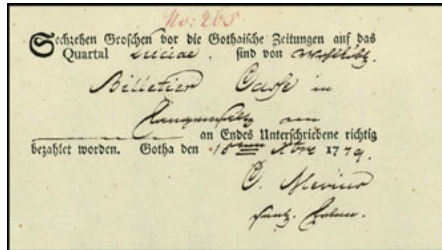 No: 265
Sechzehen Groschen vor die Gothaische Zeitungen auf das
Quartal Luciae. sind von
Billetier Casse in
an Endes Unterschriebene richtig
bezahlet worden. Gotha den 1779.
C. Mevius